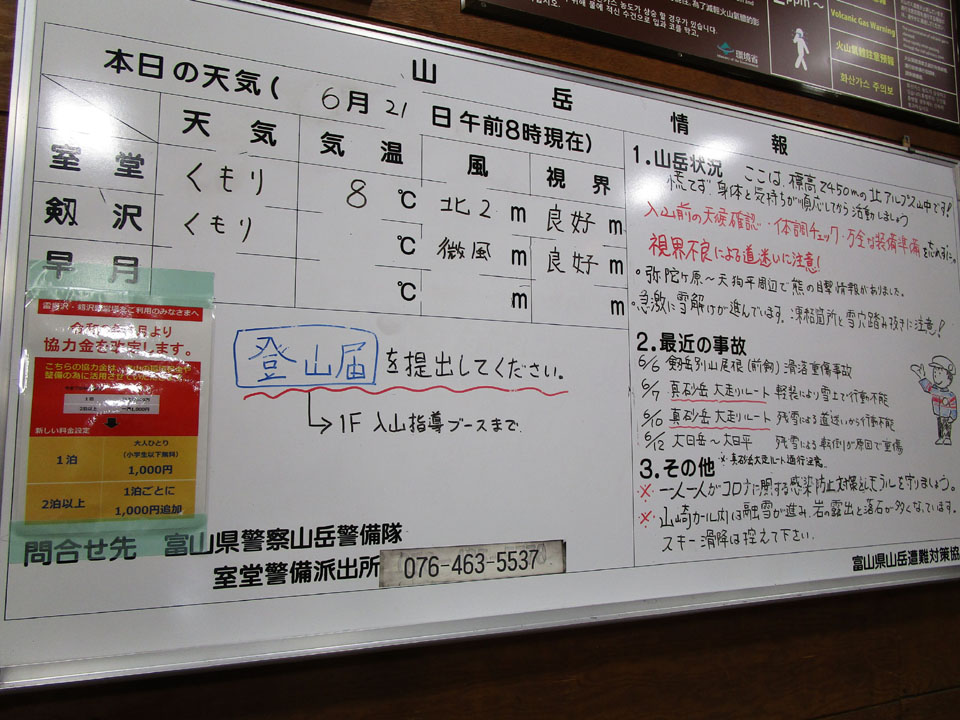 山岳情報
本日の天気(6月21日午前8時現在)
天気 気温 風 視界
室堂 くもり 8℃ 北2m 良好m
剱沢 くもり ℃ 微風m 良好m
早月 ℃ m m
登山届を提出してください。
→1F 入山指導ブースまで
雷鳥沢・剱沢野営場をご利用のみなさまへ
協力金を改定します。
こちらの協力金は
新しい料金設定
1泊 大人ひとり
(小学生以下無料)
1,000円
2泊以上 1泊ごとに
1,000円追加
問合せ先 富山県警察山岳警備隊
室堂警備派出所 076-463-5537
1.山岳状況 ここは、標高2450mの北アルプス山中です!
慌てず、身体と気持ちが順応してから活動しましょう
入山前の天候確認・体調チェック・万全な装備準備を忘れずに。
視界不良による道迷いに注意!
。弥陀ヶ原～天狗平周辺で熊の目撃情報がありました。
・急激に雪解けが進んでいます。凍結箇所と雪穴踏み抜きに注意!
2.最近の事故
6/6 剱岳別山尾根(前剱)滑落重傷事故
6/7 真砂岳大走りルート 軽装により雪上で行動不能
6/10 真砂岳大走りルート 残雪による道迷いから行動不能
6/12 大日岳～大日平 残雪による転倒が原因で重傷
※真砂岳大走ルート通行注意
3.その他
※一人一人がコロナに関する感染防止対策とルールを守りましょう。
※山崎カール内は融雪が進み、岩の露出と落石が多くなっています。
スキー滑降は控えて下さい。
富山県山岳遭難対策協
環境省
Volcanic Gas Warning
火山氣體注意預報
화산가스 주의보
ppm～